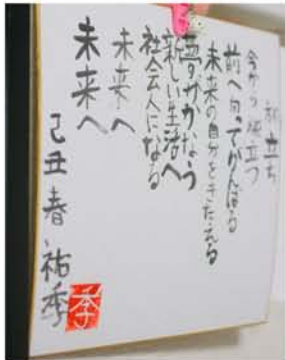 旅立ち
今から旅立つ
前へ向ってがんばる
未来の自分をきたえる
夢がかなう
新しい生活へ
社会人になる
未来へ
未来へ
己丑春 祐季
季